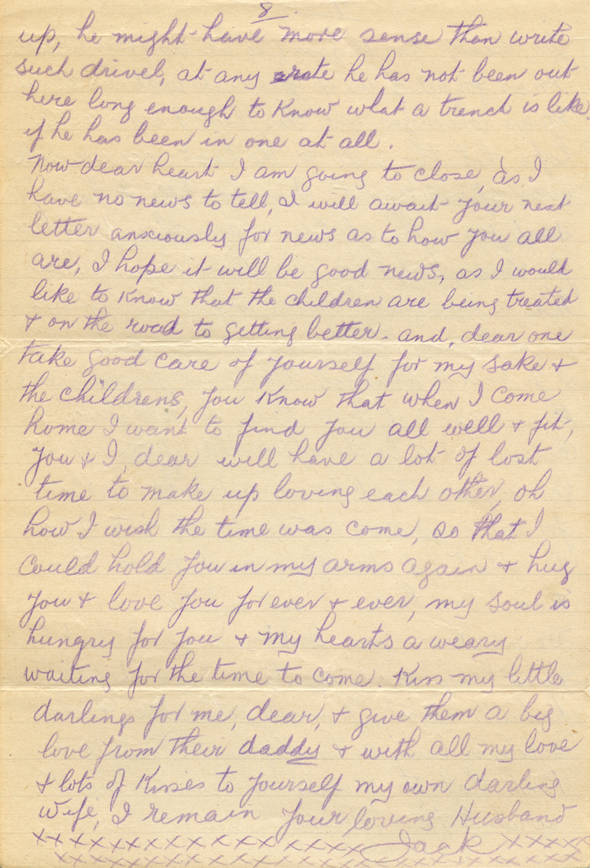 8
up, he might have more sense than write
such drivel, at any rate he has not been out
here long enough to know what a trench is like,
if he has been in one at all.
Now dear heart I am going to close, as I
have no news to tell, I will await your next
letter anxiously for news as to how you all
are, I hope it will be good news, as I would
like to know that the children are being treated
& on the road to getting better. and, dear one
take good care of yourself for my sake &
the childrens, you know that when I come
home I want to find you all well & fit,
you & I, dear will have a lot of lost
time to make up loving each other, oh
how I wish the time was come, so that I
could hold you in my arms again & hug
you & love you forever & ever, my soul is
hungry for you & my hearts a weary
waiting for the time to come. Kiss my little
darlings for me, dear, & give them a big
love from their daddy & with all my love
& lots of Kisses to yourself my own darling
wife, I remain your loving Husband
xxxxxxxxxxxxxxxxx Jack xxxxx
xxxxxxxxxxxxxxxxxxxxxxxxx